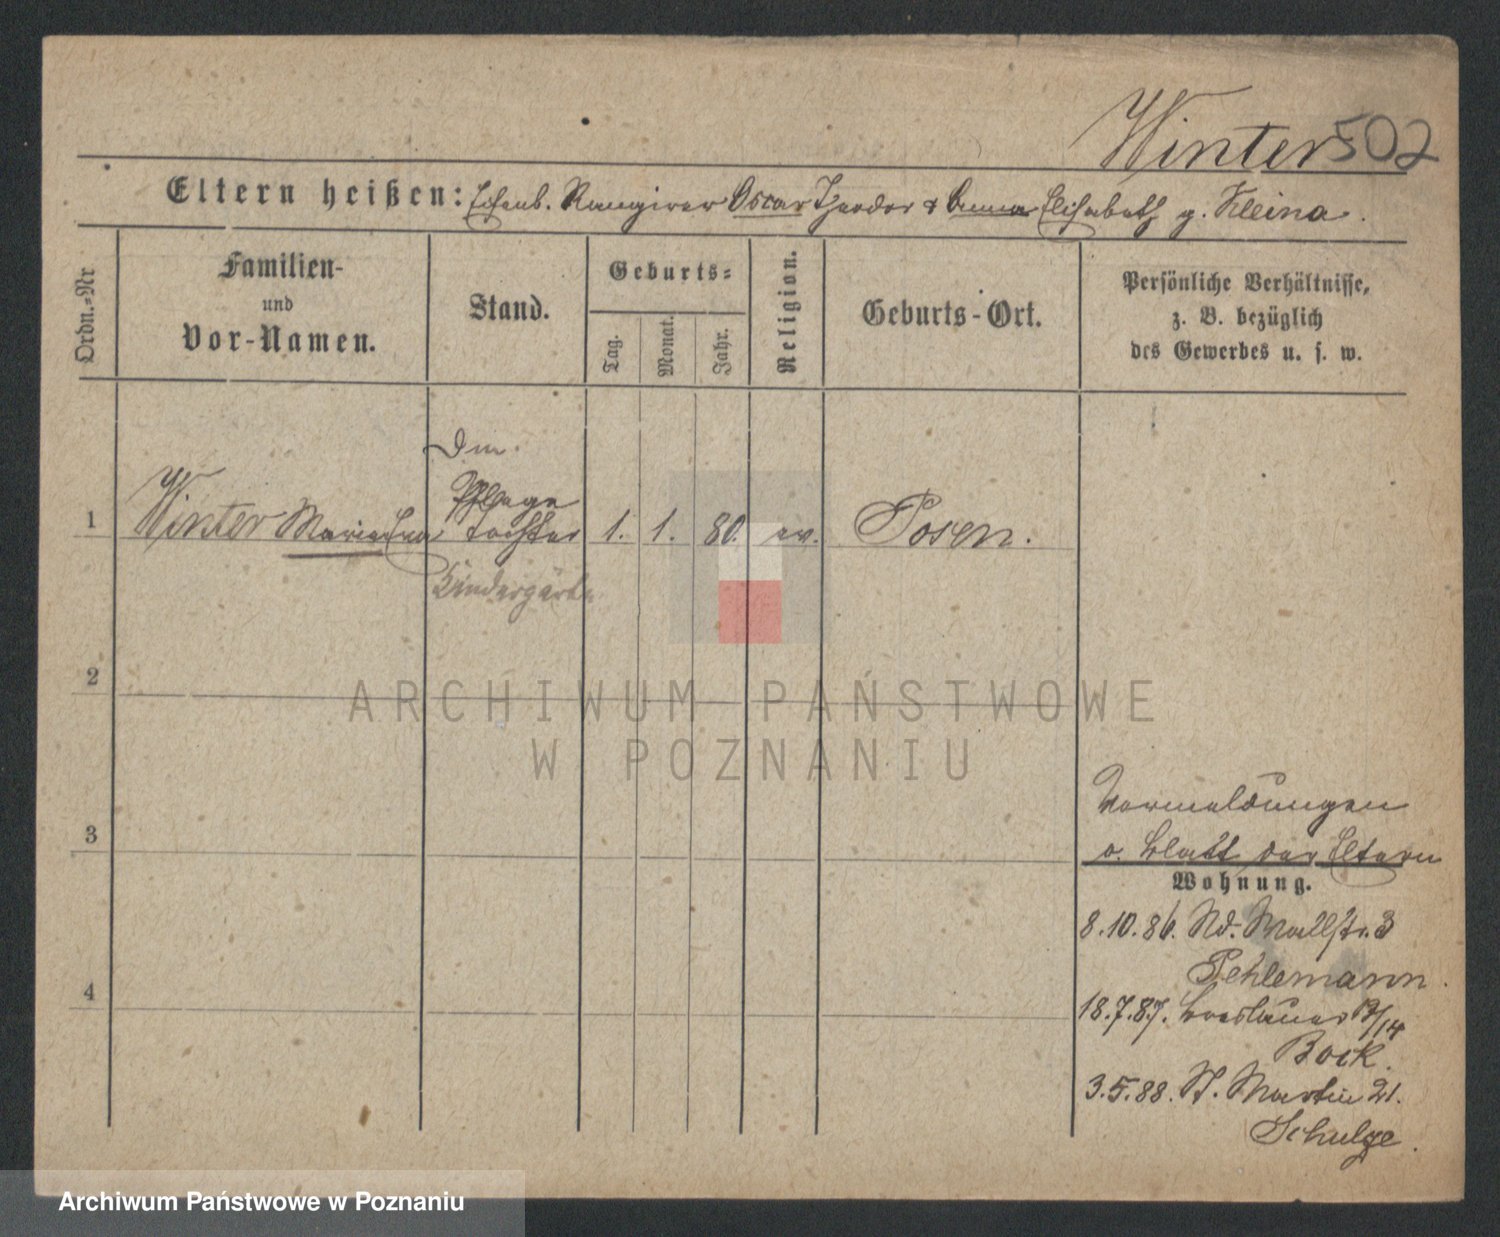 Winter 502
Eltern heißen: Eisenb. Rangirer Oscar Theodor & Anna Elisabeth g. Kleina.
Ordn.=Nr
Familien-
und
Vor-Namen.
Stand.
Geburts=
Tag.
Monat.
Jahr.
Religion.
Geburts-Ort.
Persönliche Verhältnisse,
z. B. bezüglich
des Gewerbes u. s. w.
Pflege
1 Winter Maria tochter 1. 1. 80. ev. Posen.
Kindergärt
2
ARCHIWUM PAŃSTWOWE
W POZNANIU
3
Vormeldungen
o. Blatt der Eltern
Wohnung.
8.10.86. Nd. Wallstr. 3
Pehlemann.
4
18.7.87. Breslauer 13/14
Bock.
3.5.88. St. Martin 21.
Schulze.
Archiwum Państwowe w Poznaniu